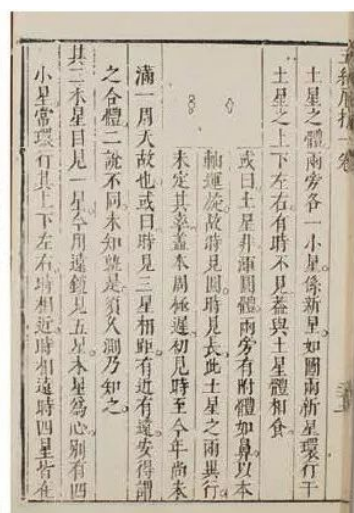 五緯歷指一卷
土星之體兩旁各一小星係新星如圖兩新星環行于
土星之上下左右有時不見蓋與土星體相食
或曰土星非渾圓體兩旁有附體如鼻以本
軸運旋故時見圓時見長此土星之兩異行
未定其率蓋本周極遲初見時至今年尚未
滿一周天故也或曰時見三星相距有近有遠安得謂
之合體二說不同未知孰是須久測乃知之
其三木星目見一星今用遠鏡見五星木星爲心別有四
小星常環行其上下左右時相近時相遠時四星皆在